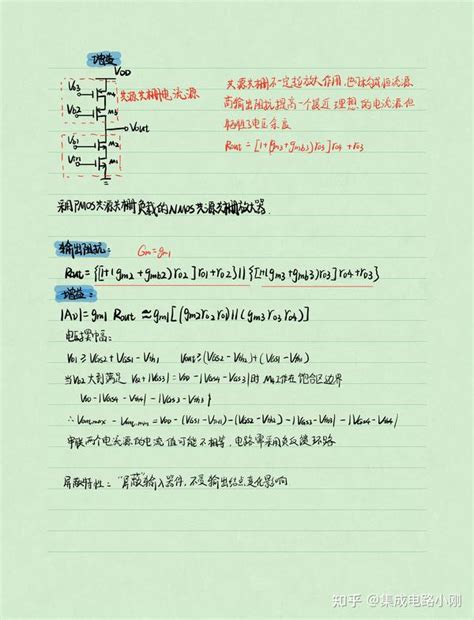 增益
VDD
Vb3
M4
共源共栅电流源
Vb2
M3
Vout
Vb1
M2
Vin1
M1
共源共栅不一定起放大作用,也可构成恒流源
高输出阻抗提高一个接近理想的电流源但
牺牲了电压余度
Rout = [1+(gm3+gmb3)ro3]ro4+ro3
采用PMOS共源共栅负载的NMOS共源共栅放大器.
输出阻抗:
Gm=gm1
Rout={[1+(gm2+gmb2)ro2]ro1+ro2}||{[1+(gm3+gmb3)ro3]ro4+ro3}
增益:
|Av|=gm1 Rout ≈gm1[(gm2ro2ro1)||(gm3ro3ro4)]
电压摆幅:
Vb1≥VGS2+VGS1-Vth1 Vout≥(VGS2-Vth2)+(VGS1-Vth1)
VDD-|VGS4-Vth4|-|VGS3-Vth3|
∴Vout,max-Vout,min=VDD-(VGS1-Vth1)-(VGS2-Vth2)-|VGS3-Vth3|-|VGS4-Vth4|
串联两个电流源的电流值可能不相等,电路需采用负反馈环路
屏蔽特性:"屏蔽"输入器件,不受输出结点变化影响
知乎 @集成电路小刚